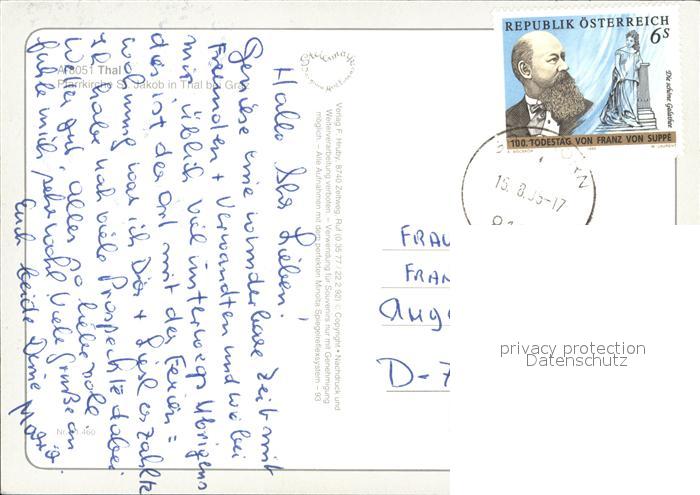 A-8051 Thal
Pfarrkirche St. Jakob in Thal bei Graz
Hallo Ihr Lieben!
Genieße eine wunderbare Zeit mit
Freunden + Verwandten und wie bei
mir üblich viel unterwegs. Übrigens
das ist der Ort mit der Ferien=
wohnung, was ich Dir + erzählte
Ich habe noch viele Prospekte dabei
alles
fühle mich sehr wohl Viele Grüße an
Euch beide Deine
Nr. 460
Verlag F. Hruby, 8740 Zeltweg, Ruf (0 35 77 / 22 2 92) · Copyright • Nachdruck und
Weiterverarbeitung verboten – Verwendung für Souvenirs nur mit Genehmigung
möglich – Alle Aufnahmen mit dem perfekten Minolta-Spiegelreflexsystem – 93
REPUBLIK ÖSTERREICH
6 S
Die schöne Galathee
100. TODESTAG VON FRANZ VON SUPPÈ
FRAU
FRAN
Aug
D-7
privacy protection
Datenschutz